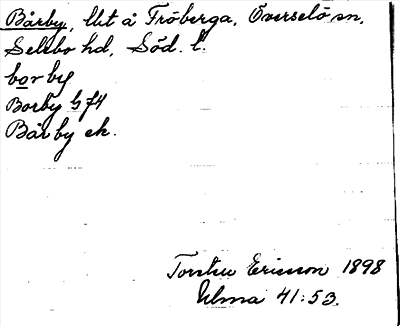 Bårby, lht å Fröberga, Överselö sn,
Selebo hd, Söd. l.
borby
Borby G 74
Bårby ek.
Torsten Ericsson 1898
Ulma 41:53.